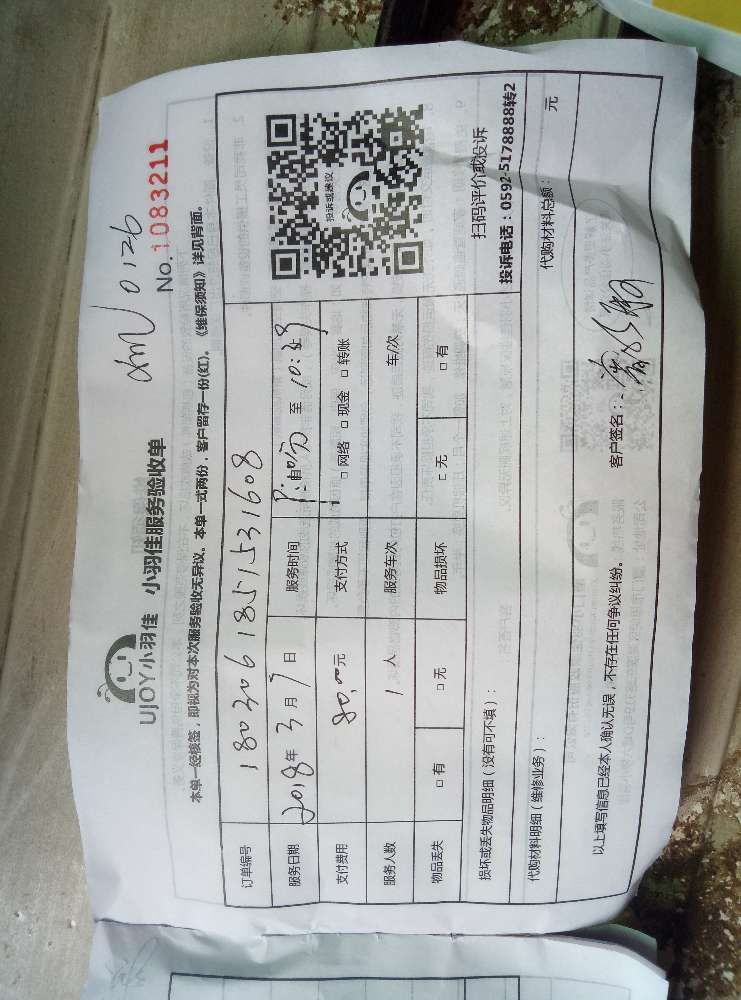 xmN 0126
No.1083211
UJOY小羽佳 小羽佳服务验收单
本单一经核签，即视为对本次服务验收无异议。本单一式两份，客户留存一份(红)。《维保须知》详见背面。
订单编号 1803061851531608
服务日期 2018年3月7日 服务时间 自 至 10:29
支付费用 80.00元 支付方式 □网络 □现金 □转账
服务人数 1人 服务车次 车/次
物品丢失 □有 □无 物品损坏 □无 □有
投诉或建议
扫码评价或投诉
投诉电话：0592-5178888转2
损坏或丢失物品明细（没有可不填）：
代购材料明细（维修业务）： 代购材料总额： 元
以上填写信息已经本人确认无误，不存在任何争议纠纷。 客户签名：